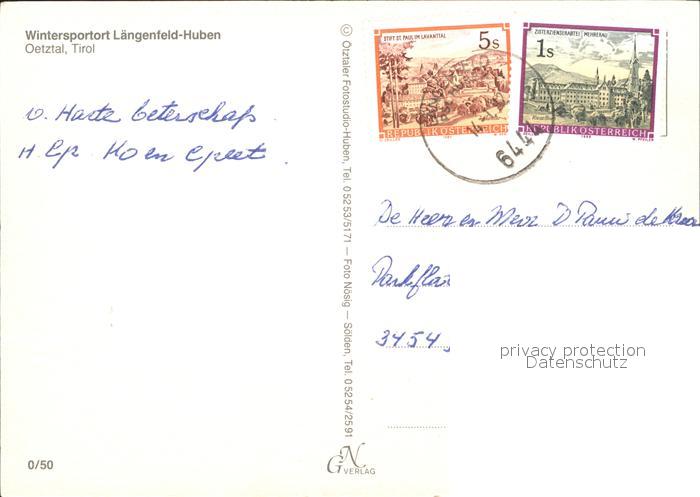 Wintersportort Längenfeld-Huben
Oetztal, Tirol
v. Harte beterschap
Koen
© Ötztaler Fotostudio-Huben, Tel. 0 52 53/5171 — Foto Nösig — Sölden, Tel. 0 52 54/25 91
STIFT ST. PAUL IM LAVANTTAL
5s
REPUBLIK ÖSTERREICH
ZISTERZIENSERABTEI MEHRERAU
1s
REPUBLIK ÖSTERREICH
644
De Heer en Mevr D
3454
privacy protection
Datenschutz
0/50
GN VERLAG